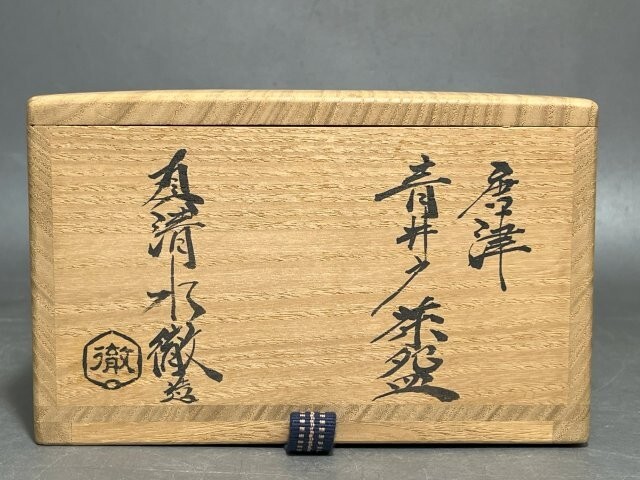 唐津
青井戸茶盌
真清水徹造
徹